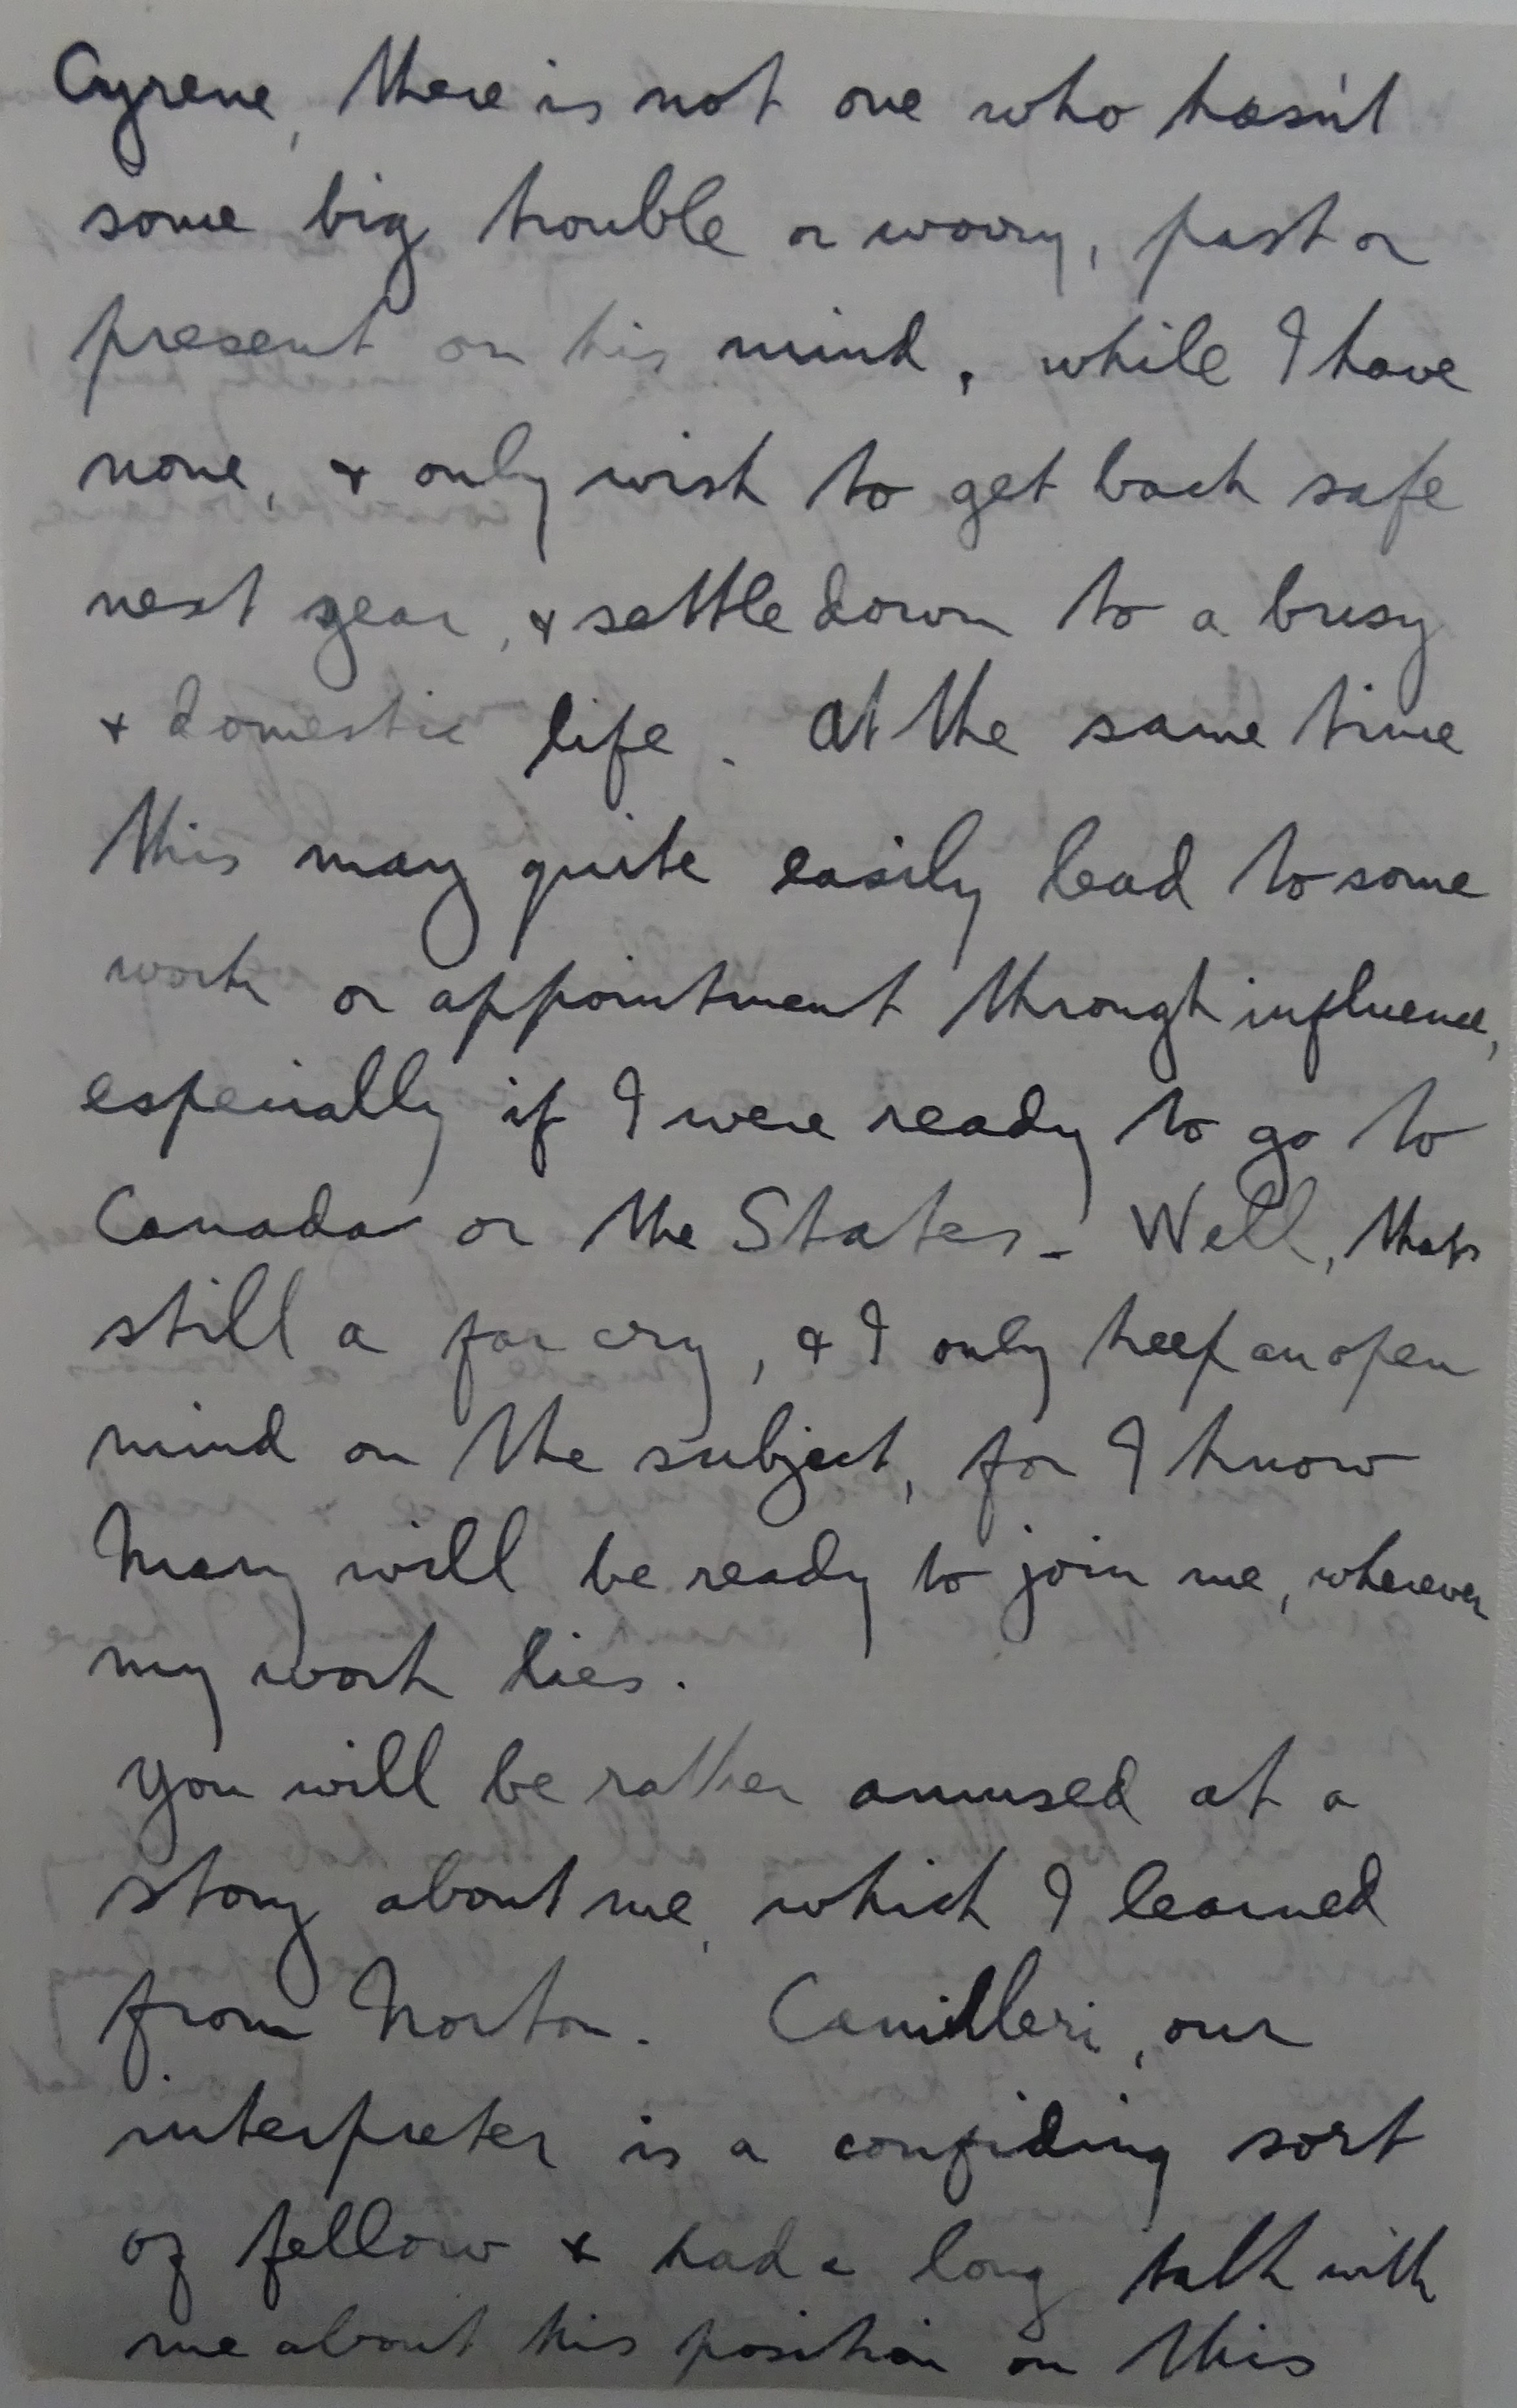 Cyrene, there is not one who hasn't
some big trouble or worry, past or
present on his mind, while I have
none, & only wish to get back safe
next year, & settle down to a busy
& domestic life. At the same time
this may quite easily lead to some
work or appointment through influence,
especially if I were ready to go to
Canada or the States. Well, thats
still a far cry, & I only keep an open
mind on the subject, for I know
Mary will be ready to join me, wherever
my work lies.
You will be rather amused at a
story about me, which I learned
from Norton. Camilleri, our
interpreter is a confiding sort
of fellow & had a long talk with
me about his position on this